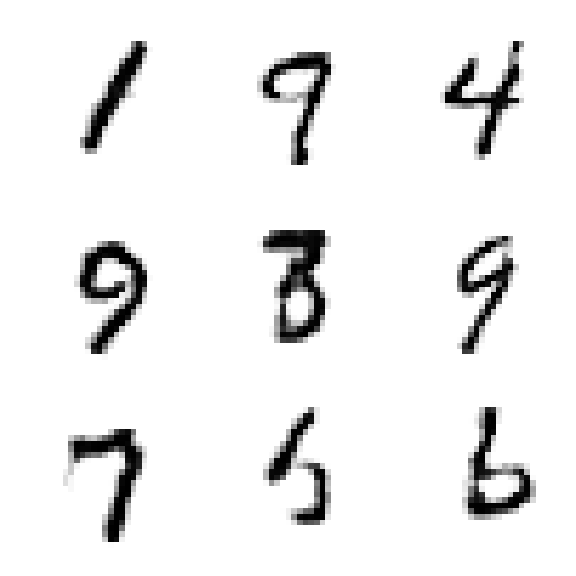 1 9 4
9 3 9
7 5 6